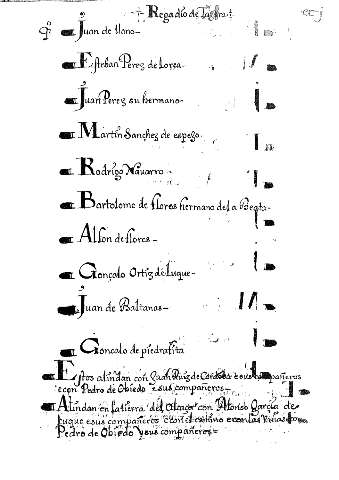 Regadio de
Juan de llano
Esteban Perez de Lorca
Juan Perez su hermano
Martin Sanchez de espejo
Rodrigo Navarro
Bartolome de flores hermano de la Beata
Alfon de flores
Gonçalo Ortiz de luque
Juan de Baltanas
Goncalo de piedrafita
Estos alindan con Juan Ruiz de Cordoba e sus compañeros
e con Pedro de Obiedo e sus compañeros
Alindan en la tierra del Alcaçar con Alfonso Garçia de
luque e sus compañeros e con el camino e con las Viñas e con
Pedro de Obiedo y sus compañeros